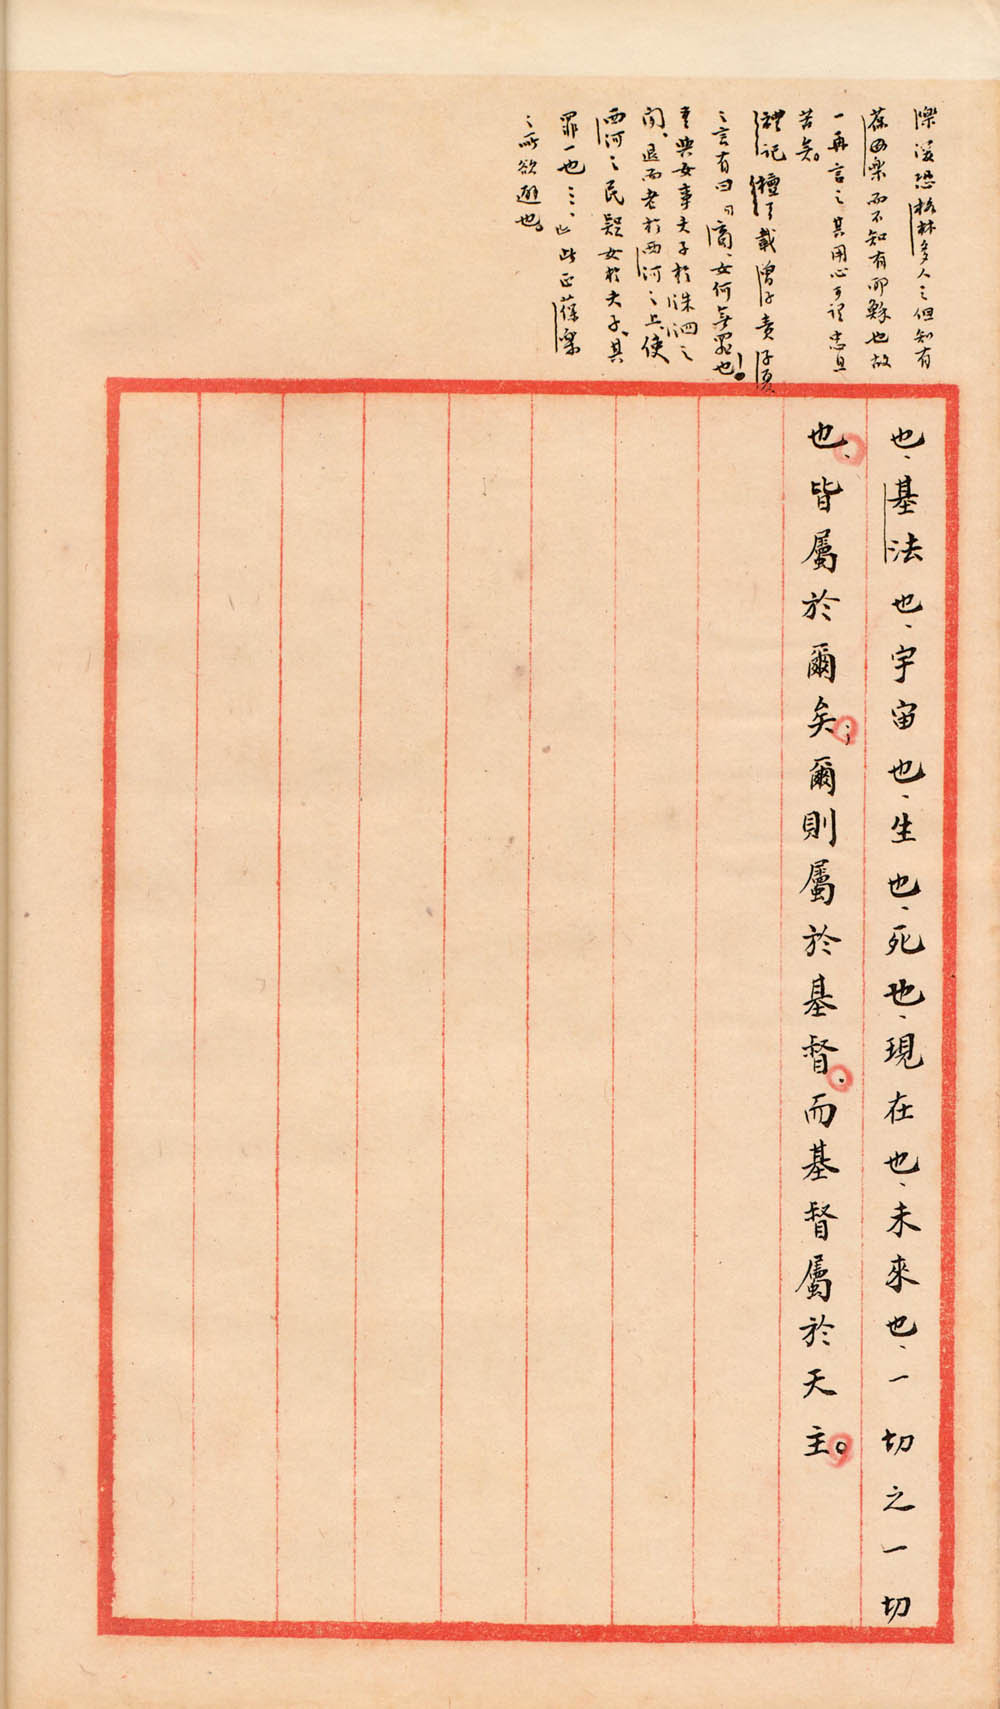 濼深恐格林多人之但知有
葆樂而不知有耶穌也故
一再言之其用心可謂忠且
苦矣。
禮記檀弓載曾子責子夏
之言有曰「商、女何無罪也！
吾與女事夫子於洙泗之
間、退而老於西河之上、使
西河之民疑女於夫子、其
罪一也…」此正葆濼
之所欲避也。
也、基法也、宇宙也、生也、死也、現在也、未來也、一切之一切
也、皆屬於爾矣；爾則屬於基督、而基督屬於天主。